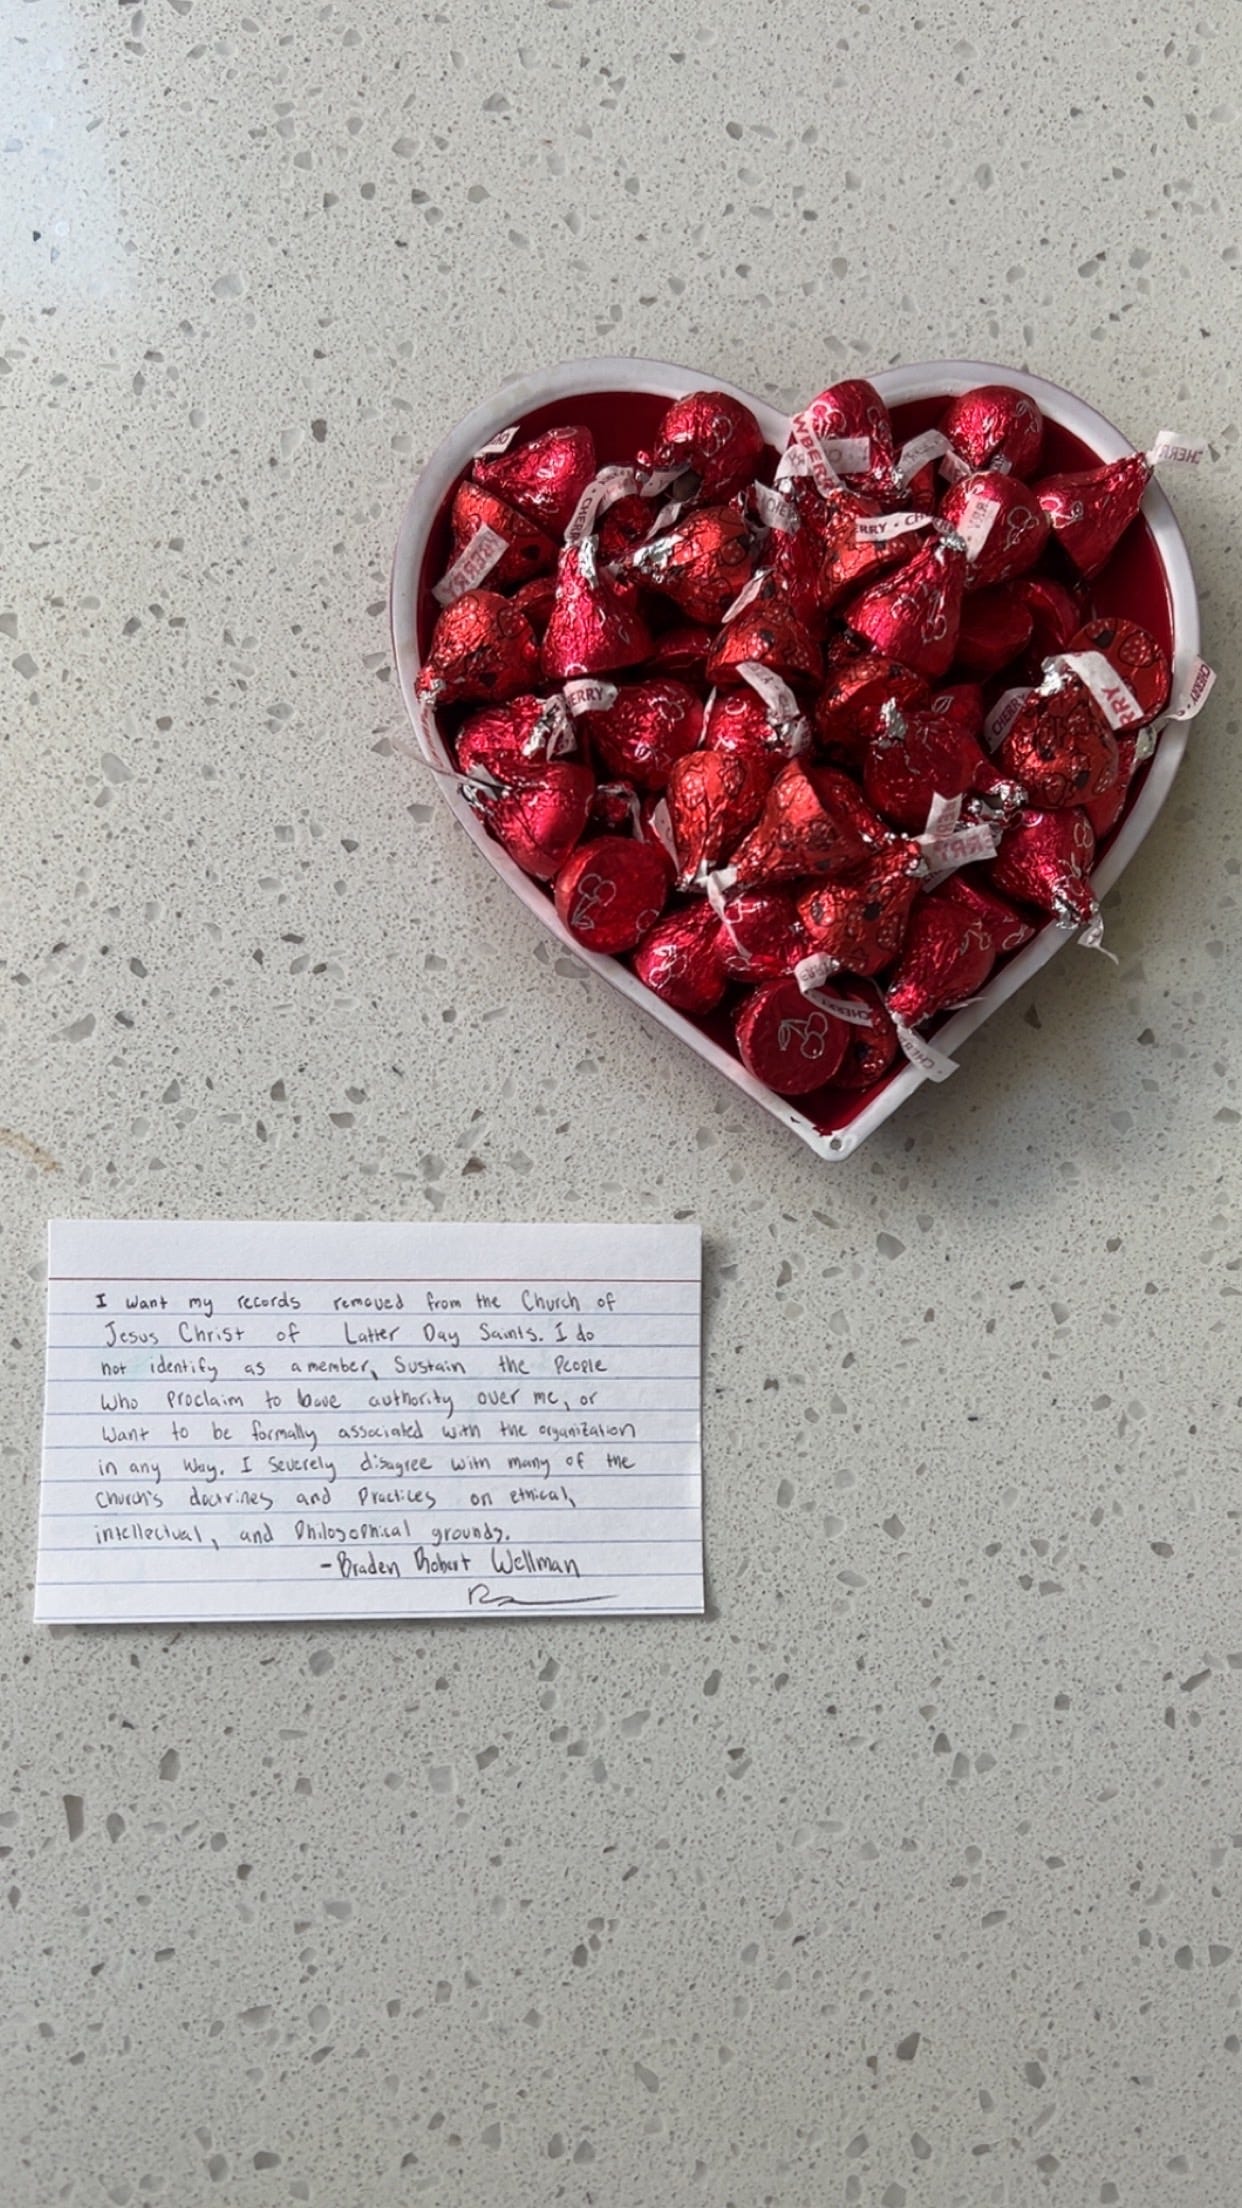 CHERRY
WBERR
CHERR
ERRY • CH
CHERRY
ERRY
CHERRY
RRY
CHERRY
ERRY
CHERRY
I want my records removed from the Church of
Jesus Christ of Latter Day Saints. I do
not identify as a member, Sustain the People
Who Proclaim to have authority over me, or
want to be formally associated with the organization
in any way. I Severely disagree with many of the
Church's doctrines and Practices on ethical,
intellectual, and Philosophical grounds.
- Braden Robert Wellman